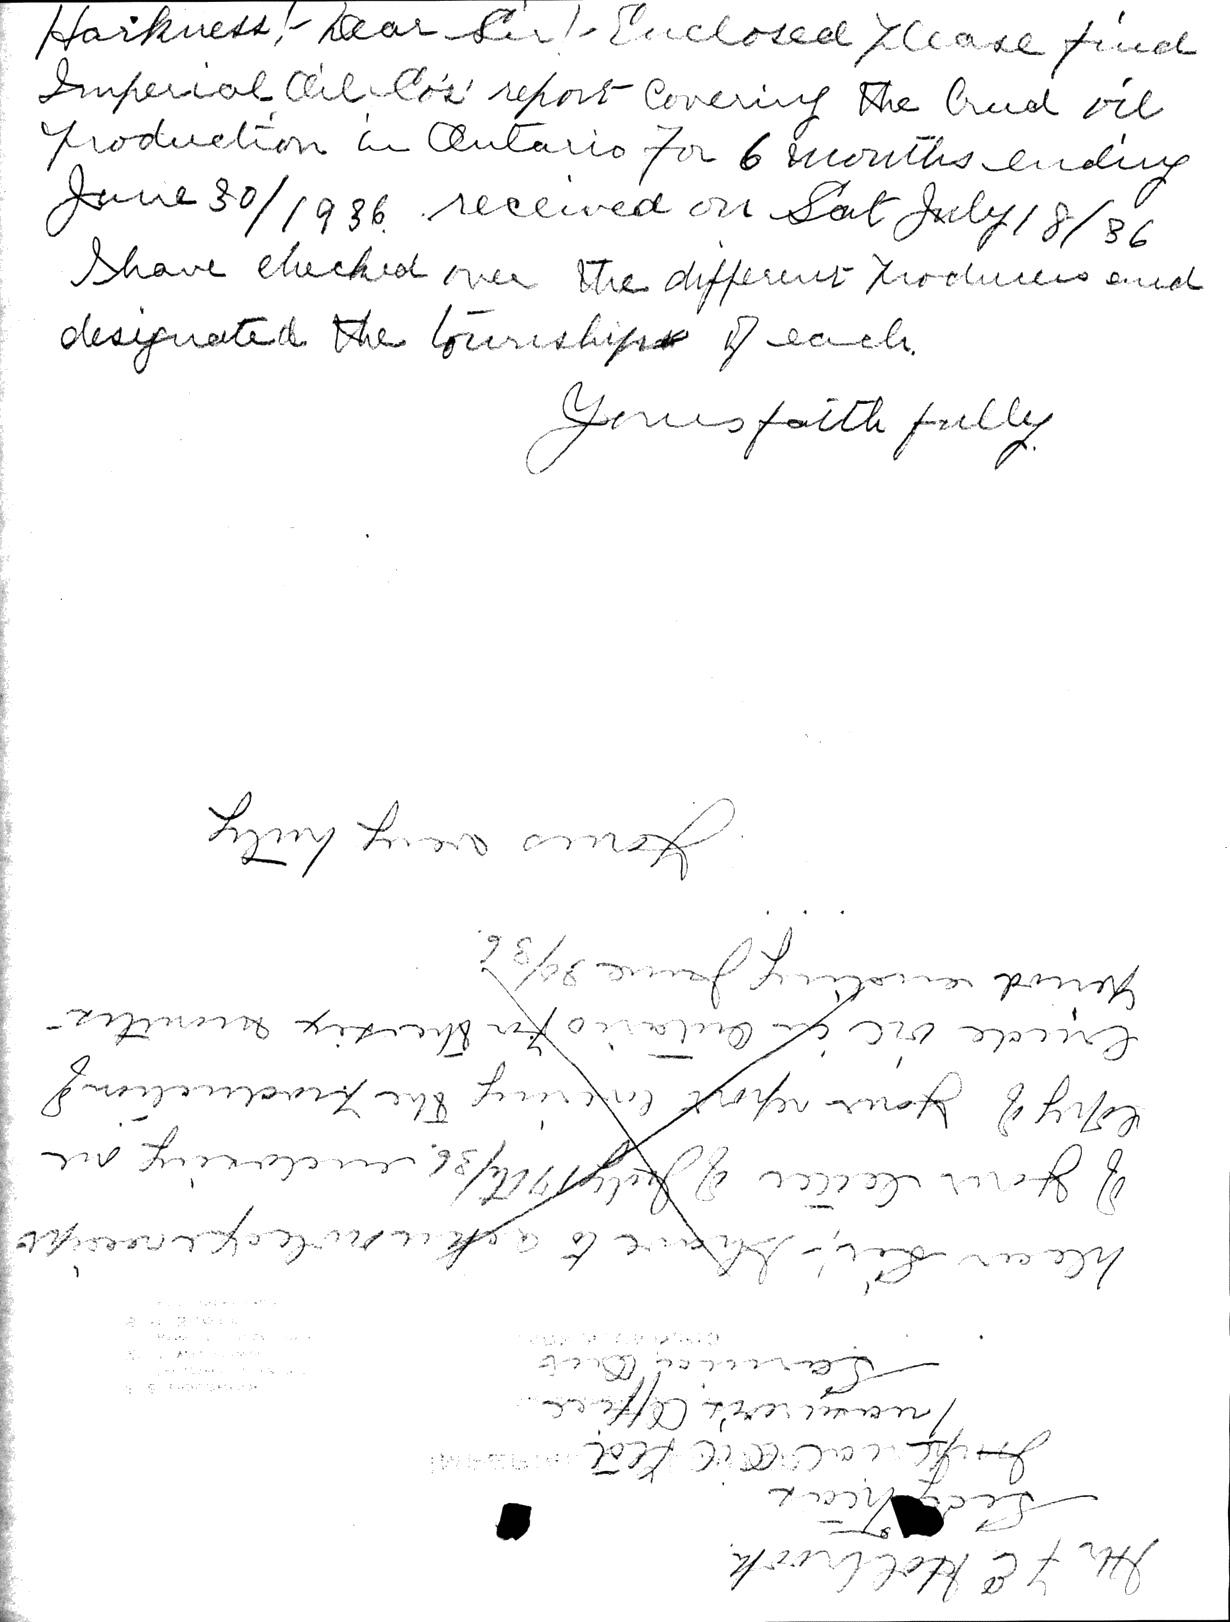 Harkness! - Dear Sir! - Enclosed Please find
Imperial Oil Co's' report covering the Crud oil
Production in Ontario for 6 months ending
June 30/1936. received on Sat July 18/36
I have checked over the different Producers and
designated the townships of each.
Yours faithfully.
Mr F C Holbrook.
Secy Treas
Imperial Oil Ltd.
Treasurer's Office
Sarnia Ont
Dear Sir; - I have to acknowledge receipt
of your letter of July 17th/36. enclosing me
Copy of your report covering the production of
Crude oil in Ontario for the six months
period ending June 30/36.
Yours very truly